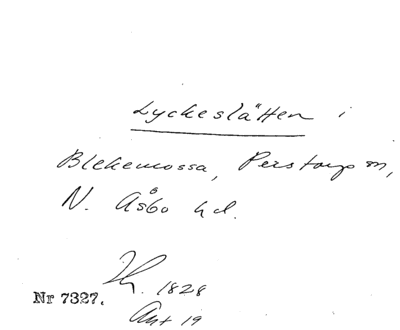 Lyckeslätten i
Blekemossa, Perstorp sn,
N. Åsbo hd.
1828
Nr 7327.
Ant 19